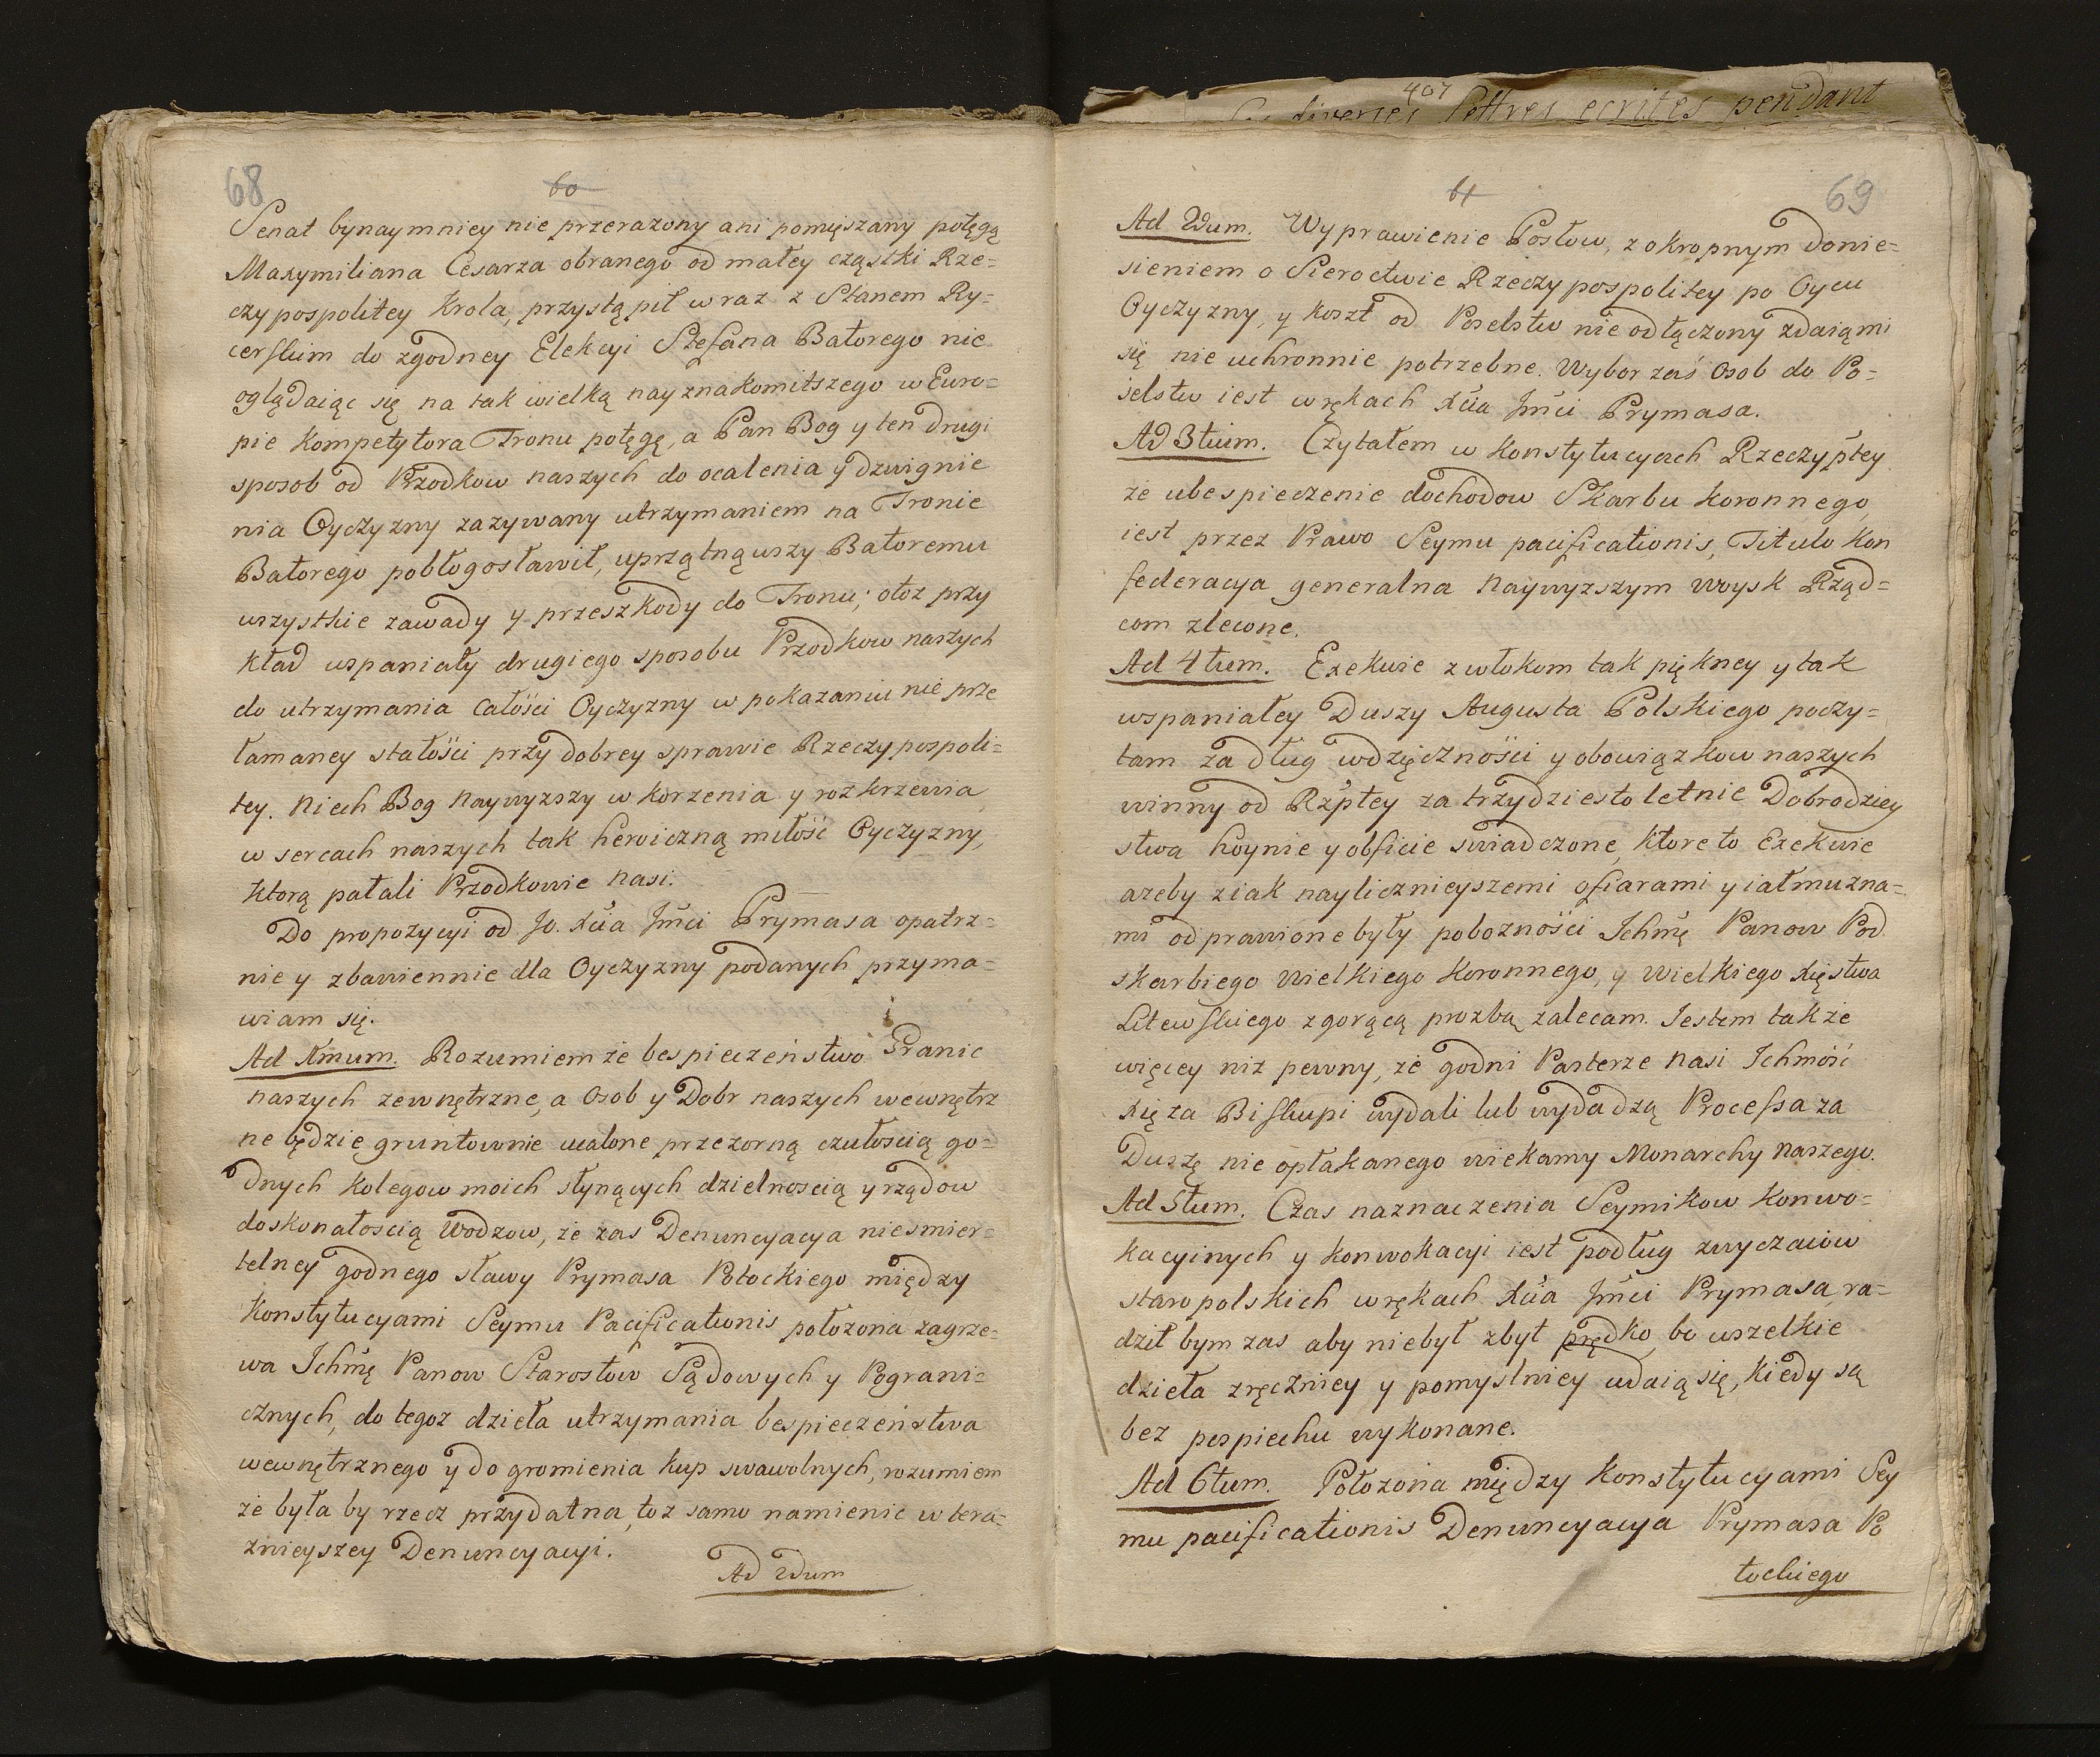 68
60
Senat bynaymniey nie przerazony ani pomięszany potęgą
Maxymiliana Cesarza obranego od małey cząstki Rze=
czypospolitey Krola, przystąpił wraz z Stanem Ry=
cerskim do zgodney Elekcyi Stefana Batorego nie
oglądaiąc się na tak wielką nayznakomitszego w Euro=
pie Kompetytora Tronu potęgę, a Pan Bog y ten drugi
sposob od Przodkow naszych do ocalenia y dzwignie
nia Oyczyzny zazywany utrzymaniem na Tronie
Batorego pobłogosławił, uprzątnąwszy Batoremu
wszystkie zawady y przeszkody do Tronu; otoz przy
kład wspaniały drugiego sposobu Przodkow naszych
do utrzymania całości Oyczyzny w pokazaniu nie prze
łamaney stałości przy dobrey sprawie Rzeczypospoli=
tey. Niech Bog Naywyzszy wkorzenia y rozkrzewia
w sercach naszych tak heroiczną miłość Oyczyzny,
ktorą pałali Przodkowie nasi.
Do propozycyi od Jo. Xcia Jmci Prymasa opatrz=
nie y zbawiennie dla Oyczyzny podanych przyma=
wiam się.
Ad 1mum. Rozumiem że bespieczeństwo Granic
naszych zewnętrzne, a Osob y Dobr naszych wewnętrz
ne będzie gruntownie ucalone przezorną czułoscią go=
dnych Kolegow moich słynących dzielnoscią y rządow
doskonałoscią Wodzow, że zas Denuncyacya niesmier=
telney godnego sławy Prymasa Potockiego między
Konstytucyami Seymu Pacificationis położona zagrze=
wa Ichmę Panow Starostow Sądowych y Pograni=
cznych, do tegoz dzieła utrzymania bespieczeństwa
wewnętrznego y do gromienia kup swawolnych, rozumiem
że była by rzecz przydatna, toz samo namienic w tera=
znieyszey Denuncyacyi.
Ad 2dum
407
diverses lettres ecrites pendant
61
69
Ad 2dum. Wyprawienie Posłow, z okropnym donie=
sieniem o Sieroctwie Rzeczypospolitey po Oycu
Oyczyzny, y koszt od Poselstw nie odłączony zdaią mi
się nie uchronnie potrzebne. Wybor zaś Osob do Po=
selstw iest w rękach Xcia Jmci Prymasa.
Ad 3tium. Czytałem w Konstytucyach Rzeczyptey
że ubespieczenie dochodow Skarbu koronnego,
iest przez Prawo Seymu pacificationis, Titulo Kon
federacya generalna Naywyzszym Woysk Rząd=
com zlecone.
Ad 4tum. Exekwie zwłokom tak piękney y tak
wspaniałey Duszy Augusta Polskiego poczy=
tam za dług wdzięczności y obowiązkow naszych
winny od Rzptey za trzydziesto letnie Dobrodziey
stwa hoynie y obficie swiadczone, ktore to Exekwie
azeby z iak nayliczniejszemi ofiarami y iałmuzna=
mi odprawione były pobozności Ichmę Panow Pod
skarbiego Wielkiego Koronnego, y Wielkiego Xięstwa
Litewskiego z gorącą prozbą zalecam. Jestem takze
więcey niz pewny, że godni Pasterze nasi Ichmość
Xięza Biskupi wydali lub wydadzą Processa za
Duszę nie opłakanego wiekamy Monarchy naszego.
Ad 5tum. Czas naznaczenia Seymikow Konwo=
kacyinych y Konwokacyi iest podług zwyczaiow
staropolskich w rękach Xcia Jmci Prymasa, ra=
dził bym zas aby niebył zbyt prędko, bo wszelkie
dzieła zręczniey y pomyslniey udaią się, kiedy są
bez pospiechu wykonane.
Ad 6tum. Położona między Konstytucyami Sey
mu pacificationis Denuncyacya Prymasa Po
tockiego